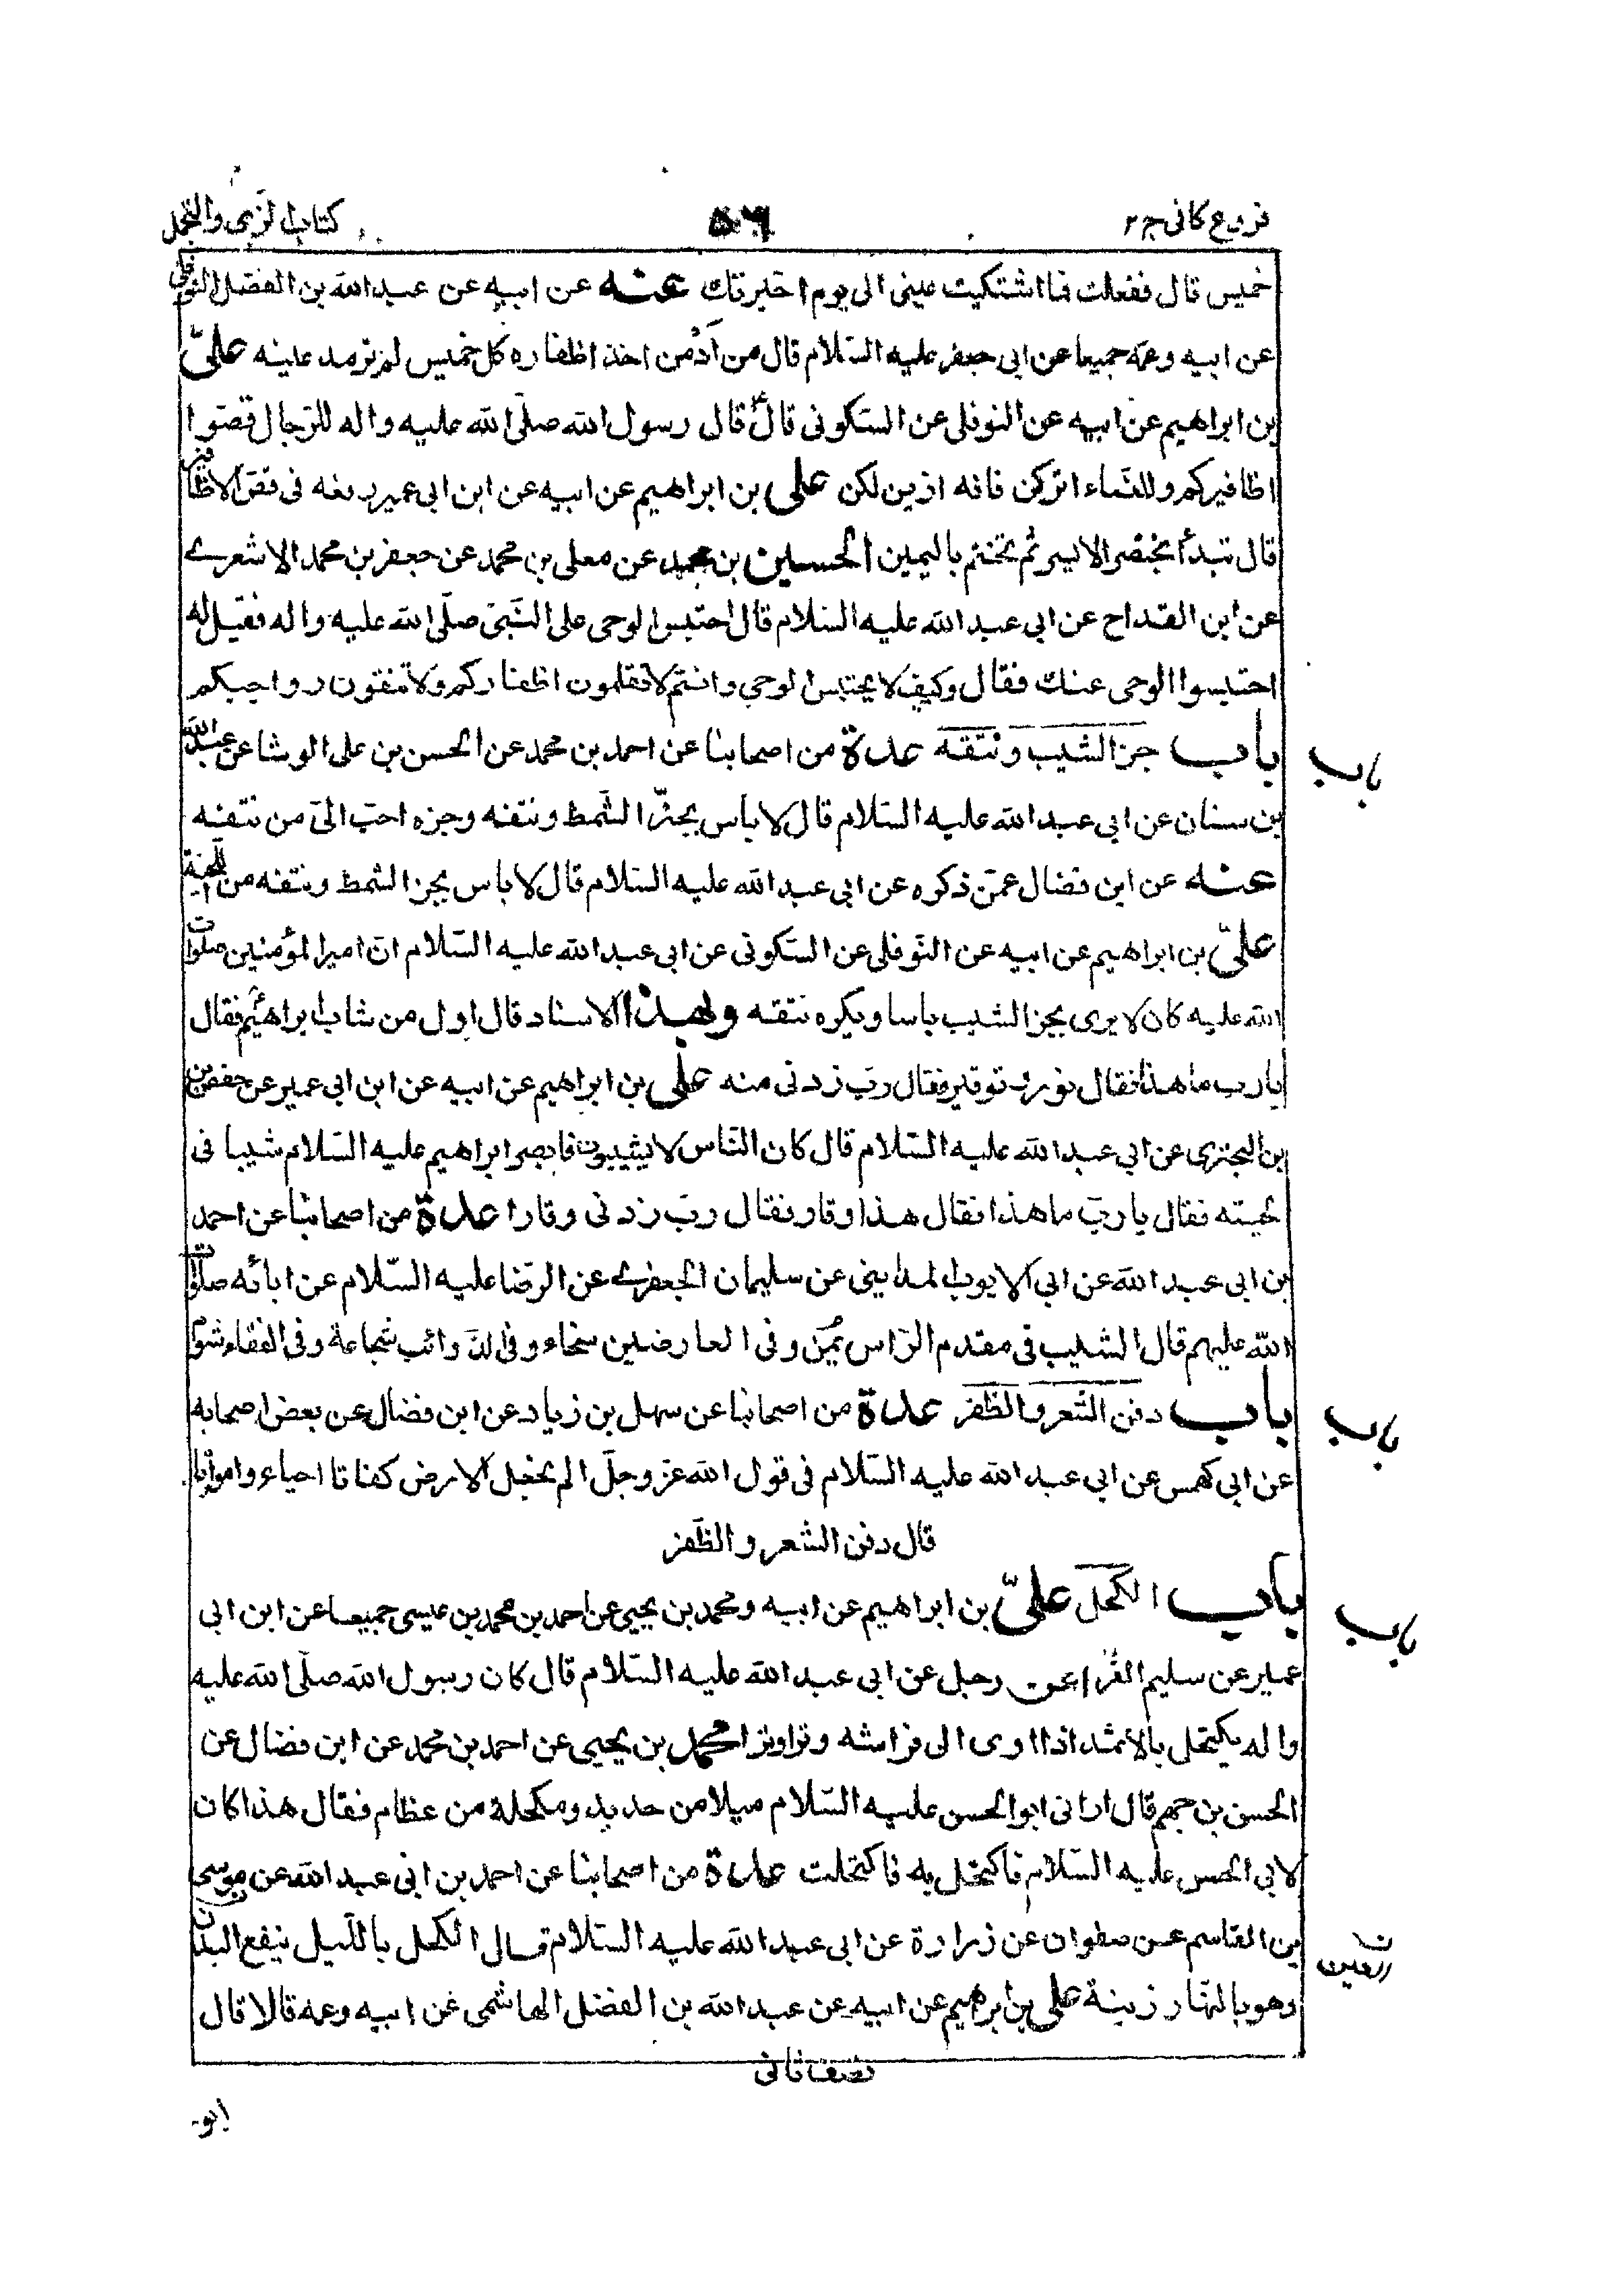 فروع كافى ج ٢ ٥٠٦ كتاب الزى والتجمل
خميس قال ففعلت فما اشتكيت عينى الى يوم اخبرتك عنه عن ابيه عن عبد الله بن الفضل النوفلى
عن ابيه وعمه جميعا عن ابى جعفر عليه السّلام قال من أدْمن اخذ اظفاره كل خميس لم ترمد عينه علىّ
بن ابراهيم عن ابيه عن النوفلى عن السّكونى قال قال رسول الله صلّى الله عليه واله للرّجال قصّوا
اظافيركم وللنّساء اتركن فانه ازين لكن على بن ابراهيم عن ابيه عن ابن ابى عمير رفعه فى قصّ الاظافير
قال تبدأ بخنصر الايسر ثم تختم باليمين الحسين بن محمد عن معلى بن محمد عن جعفر بن محمد الاشعرے
عن ابن القداح عن ابى عبد الله عليه السّلام قال احتبس الوحى على النّبىّ صلّى الله عليه واله فقيل له
احتبسوا الوحى عنك فقال وكيف لا يحتبس الوحى وانتم لا تقلمون اظفاركم ولا تنقون رواجبكم
باب
باب جز الشيب ونتفه عدة من اصحابنا عن احمد بن محمد عن الحسن بن على الوشا عن عبد الله
بن سنان عن ابى عبد الله عليه السّلام قال لا باس بجزّ الشّمط ونتفه وجزه احبّ الىّ من نتفه
عنه عن ابن فضال عمّن ذكره عن ابى عبد الله عليه السّلام قال لا باس بجز الشمط ونتفه من اللّحية
علىّ بن ابراهيم عن ابيه عن النّوفلى عن السّكونى عن ابى عبد الله عليه السّلام انّ امير المؤمنين صلوات
الله عليه كان لا يرى بجز الشيب باسا ويكره نتفه وبهذا الاسناد قال اول من شاب ابراهيم فقال
يا رب ما هذا فقال نور وتوقير فقال ربّ زدنى منه على بن ابراهيم عن ابيه عن ابن ابى عمير عن حفص بن
بن البخترى عن ابى عبد الله عليه السّلام قال كان النّاس لا يشيبون فابصر ابراهيم عليه السّلام شيبا فى
لحيته فقال يا ربّ ما هذا فقال هذا وقار فقال ربّ زدنى وقارا عدة من اصحابنا عن احمد
بن ابى عبد الله عن ابى الايوب المداينى عن سليمان الجعفرے عن الرّضا عليه السّلام عن ابائه صلوات
الله عليهم قال الشيب فى مقدم الرّاس يُمن وفى العارضين سخاء وفى الذّوائب شجاعة وفى القفاء شوم
باب
باب دفن الشّعر والظّفر عدة من اصحابنا عن سهل بن زياد عن ابن فضال عن بعض اصحابه
عن ابى كهمس عن ابى عبد الله عليه السّلام فى قول الله عزّ وجلّ الم نجعل الارض كفاتا احياء وامواتا
قال دفن الشعر والظّفر
باب
باب الكحل علىّ بن ابراهيم عن ابيه ومحمد بن يحيى عن احمد بن محمد بن عيسى جميعا عن ابن ابى
عمير عن سليم الفرّاء عن رجل عن ابى عبد الله عليه السّلام قال كان رسول الله صلّى الله عليه
واله يكتحل بالاثمد اذا اوى الى فراشه وترا وترا محمد بن يحيى عن احمد بن محمد عن ابن فضال عن
الحسن بن جهم قال ارانى ابو الحسن عليه السّلام ميلا من حديد ومكحلة من عظام فقال هذا كان
لابى الحسن عليه السّلام فاكتحل به فاكتحلت عدة من اصحابنا عن احمد بن ابى عبد الله عن موسى
بن القاسم عن صفوان عن زرارة عن ابى عبد الله عليه السّلام قال الكحل بالليل ينفع البدن
العين ن
وهو بالنهار زينة على بن ابرهيم عن ابيه عن عبد الله بن الفضل الهاشمى عن ابيه وعمه قالا قال
نصف ثانى
ابو